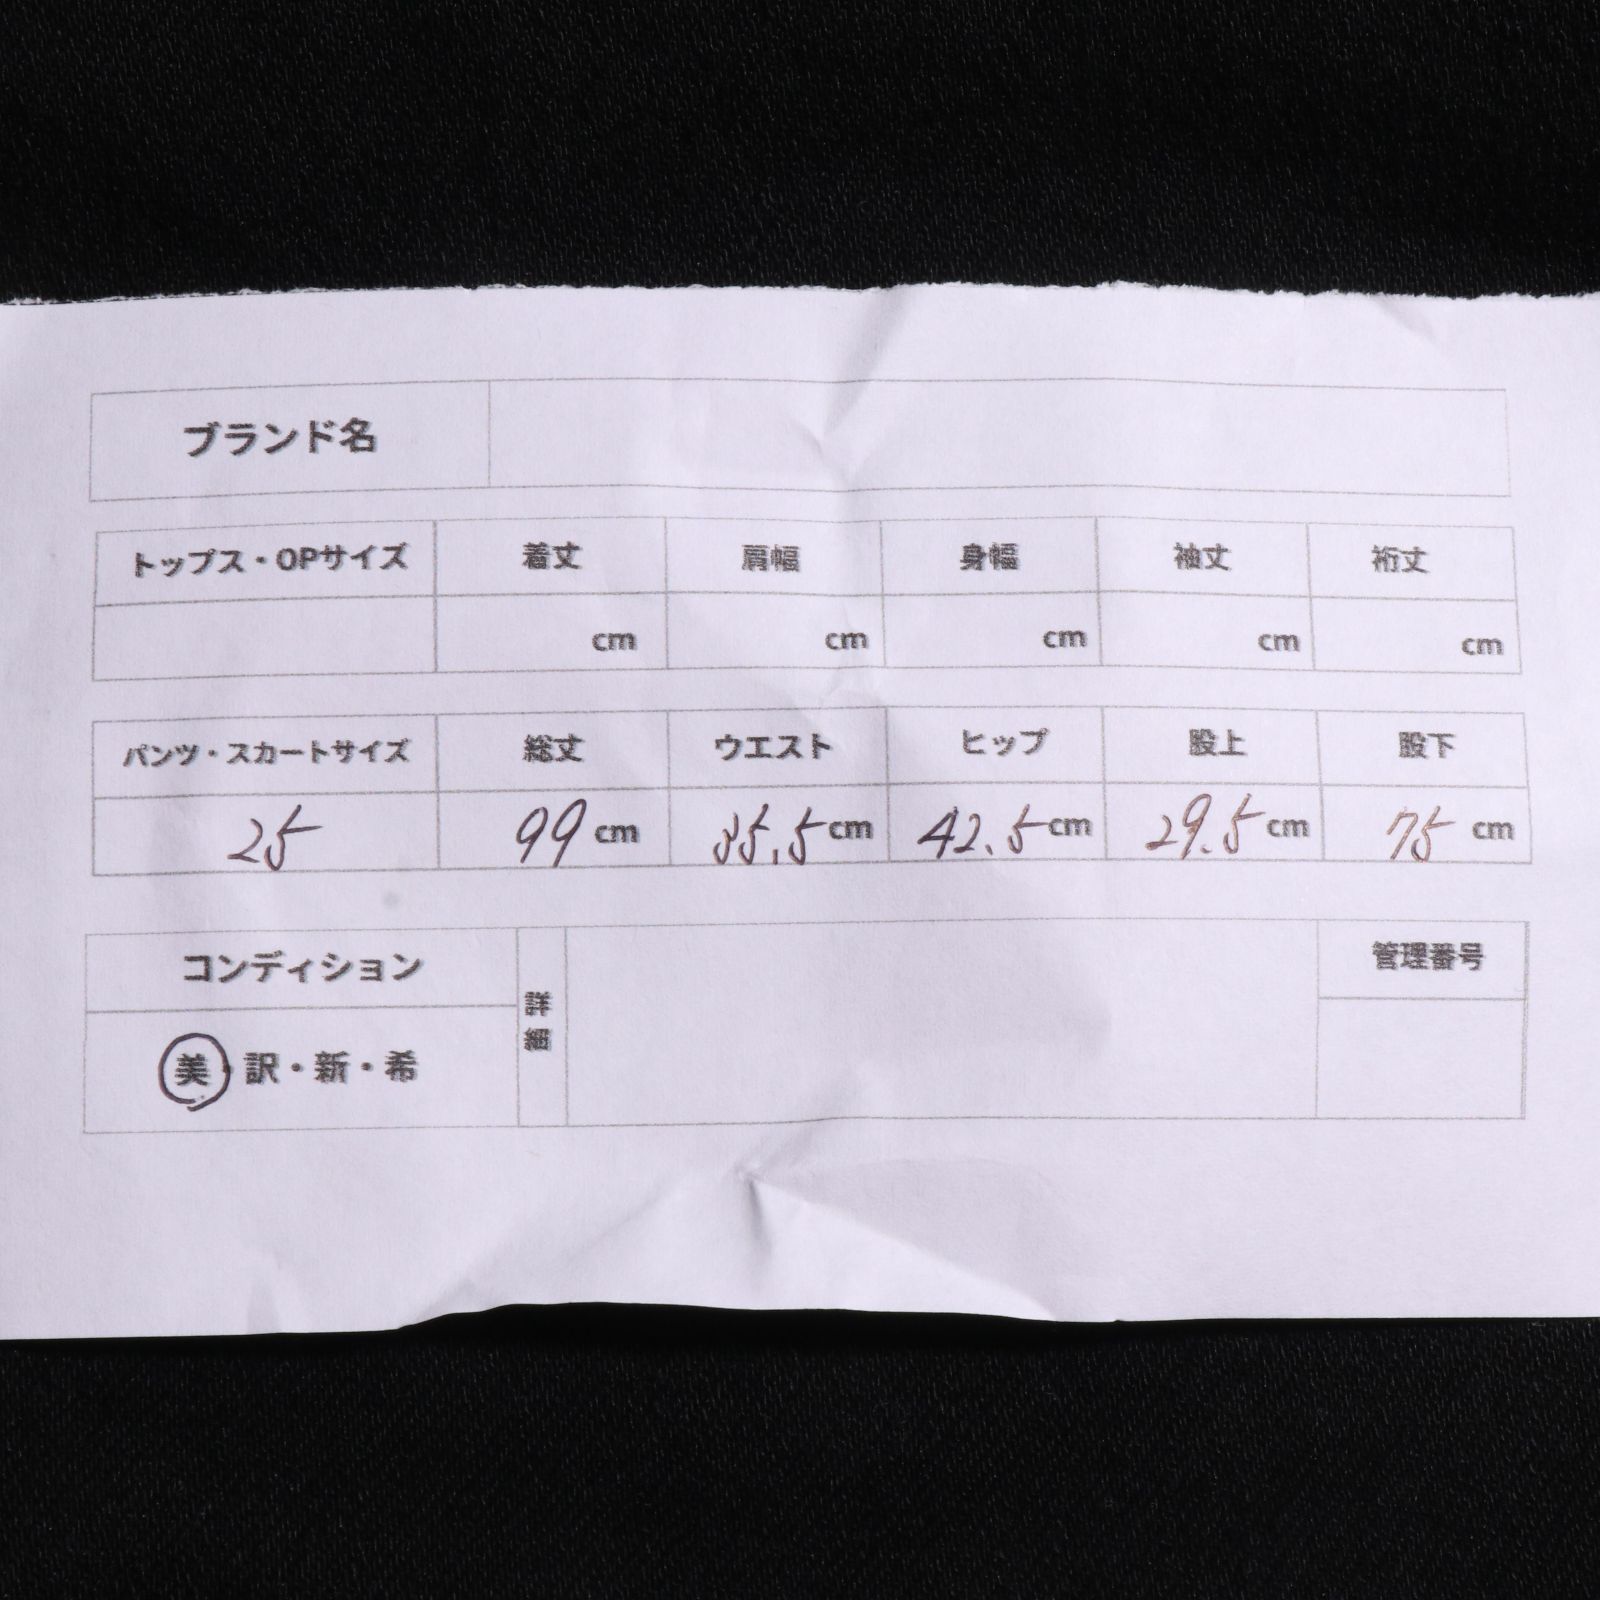 ブランド名
トップス・OPサイズ 着丈 肩幅 身幅 袖丈 裄丈
cm cm cm cm cm
パンツ・スカートサイズ 総丈 ウエスト ヒップ 股上 股下
25 99 cm 35.5 cm 42.5 cm 29.5 cm 75 cm
コンディション 詳細 管理番号
美・訳・新・希